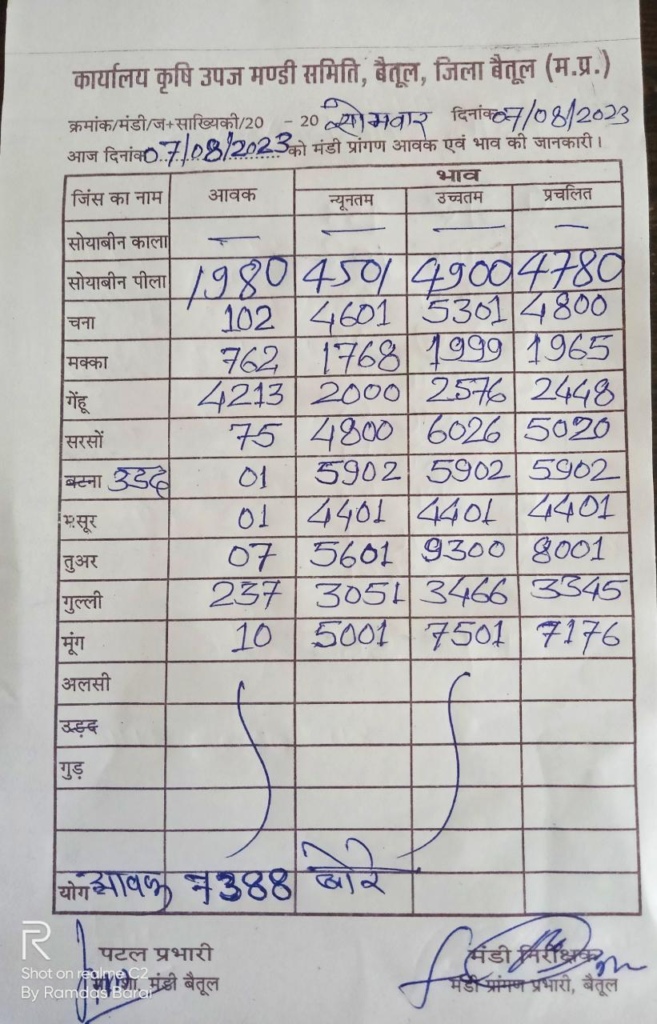 कार्यालय कृषि उपज मण्डी समिति, बैतूल, जिला बैतूल (म.प्र.)
क्रमांक/मंडी/ज+साख्यिकी/20 - 20 सोमवार दिनांक 07/08/2023
आज दिनांक 07/08/2023 को मंडी प्रांगण आवक एवं भाव की जानकारी।
जिंस का नाम आवक भाव
न्यूनतम उच्चतम प्रचलित
सोयाबीन काला — — — —
सोयाबीन पीला 1980 4501 4900 4780
चना 102 4601 5301 4800
मक्का 762 1768 1999 1965
गेंहू 4213 2000 2576 2448
सरसों 75 4800 6026 5020
बटना उड़द 01 5902 5902 5902
मसूर 01 4401 4401 4401
तुअर 07 5601 9300 8001
गुल्ली 237 3051 3466 3345
मूंग 10 5001 7501 7176
अलसी
उड़द
गुड़
योग आवक 7388 बोरे
पटल प्रभारी मंडी निरीक्षक
मंडी बैतूल मंडी प्रांगण प्रभारी, बैतूल
R
Shot on realme C2
By Ramdas Barai